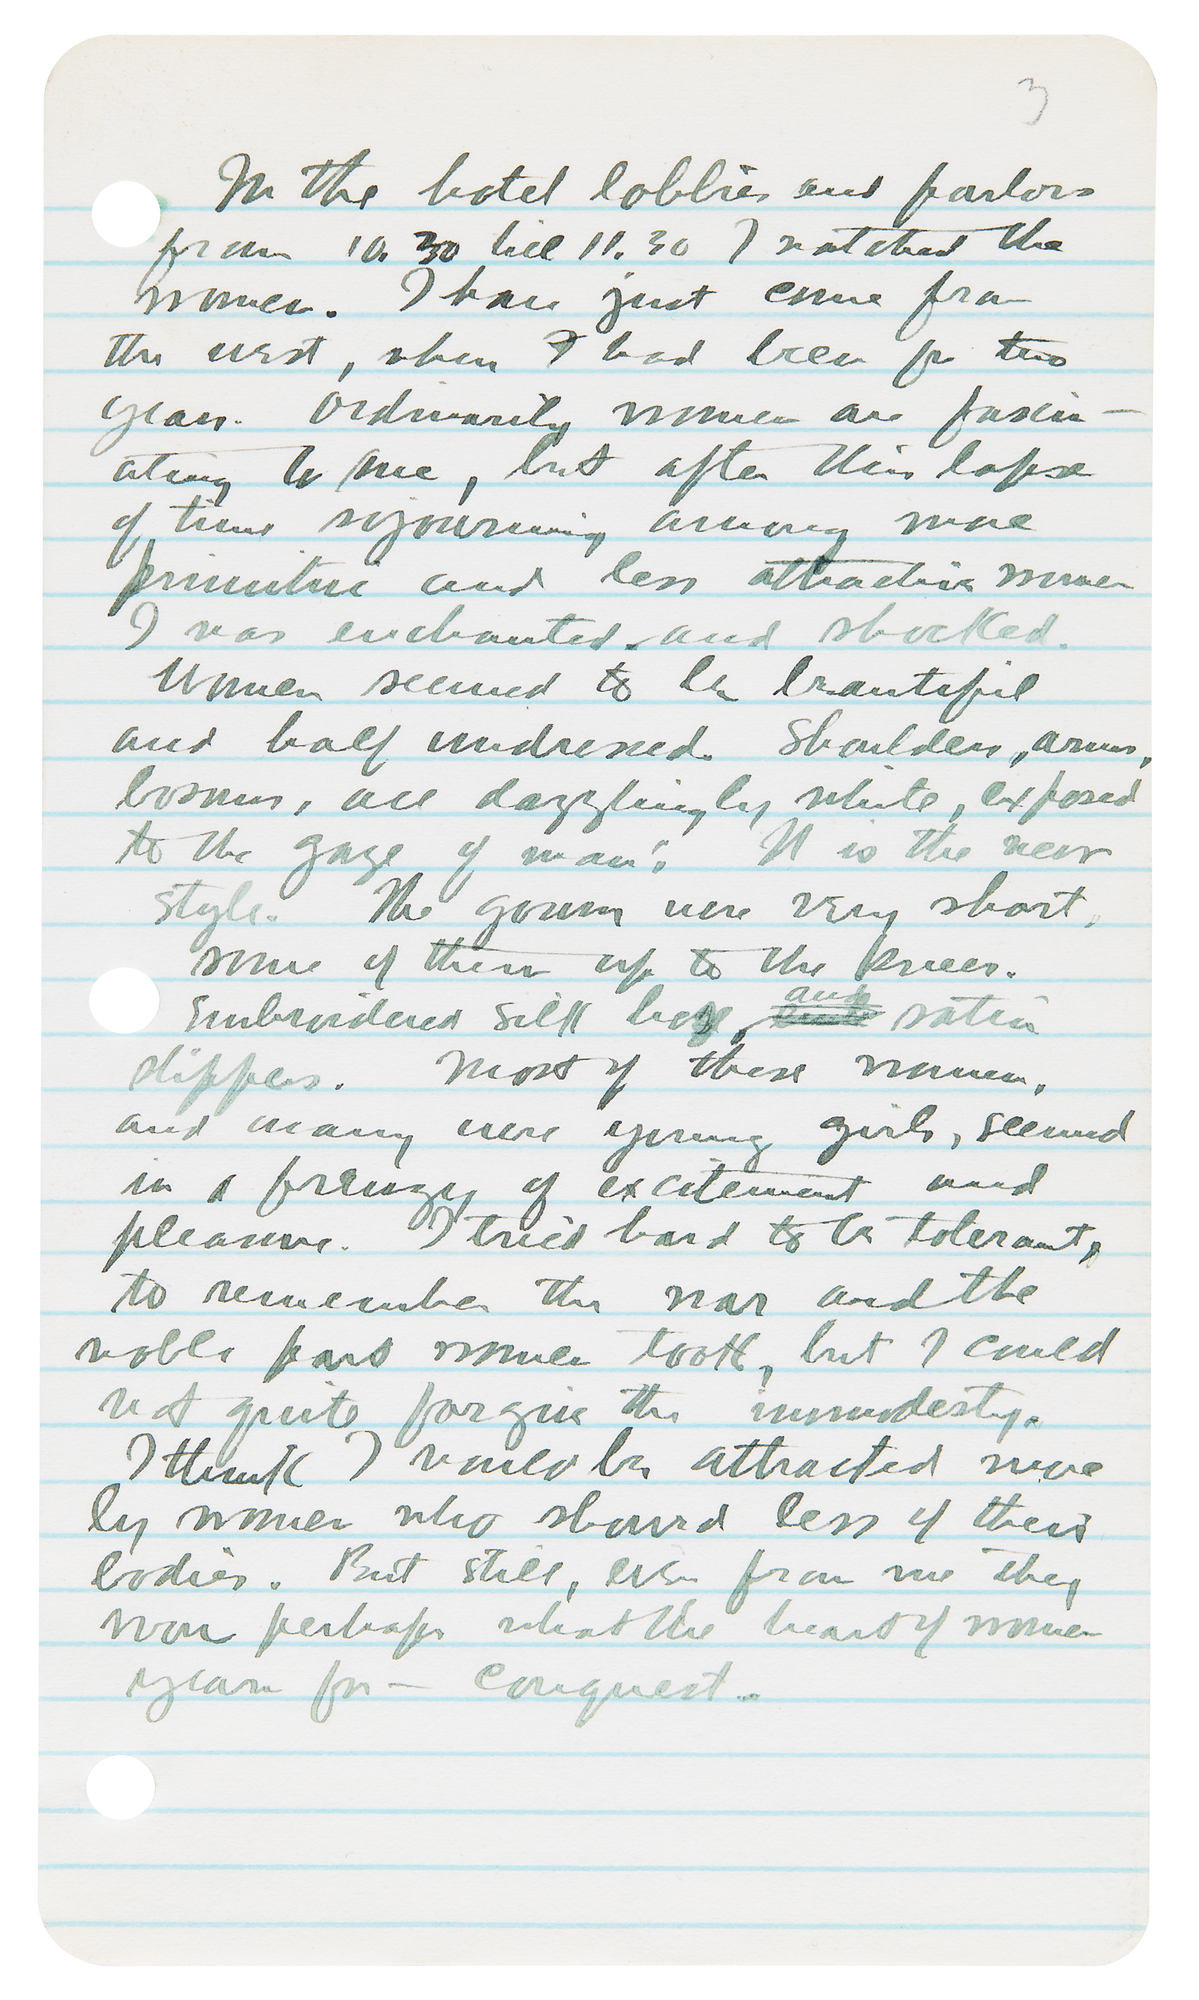 3
In the hotel lobbies and parlors
from 10.30 till 11.30 I watched the
women. I have just come from
the west, where I had been for two
years. Ordinarily women are fascin-
ating to me, but after this lapse
of time sojourning among more
primitive and less attractive women
I was enchanted and shocked.
Women seemed to be beautiful
and half undressed. Shoulders, arms,
bosoms, all dazzlingly white, exposed
to the gaze of man. It is the new
style. The gowns were very short,
some of them up to the knees.
Embroidered silk hose, and satin
slippers. Most of these women,
and many were young girls, seemed
in a frenzy of excitement and
pleasure. I tried hard to be tolerant,
to remember the war and the
noble part women took, but I could
not quite forgive the immodesty.
I think I would be attracted more
by women who showed less of their
bodies. But still, even from me they
won perhaps what the heart of women
yearn for — conquest.